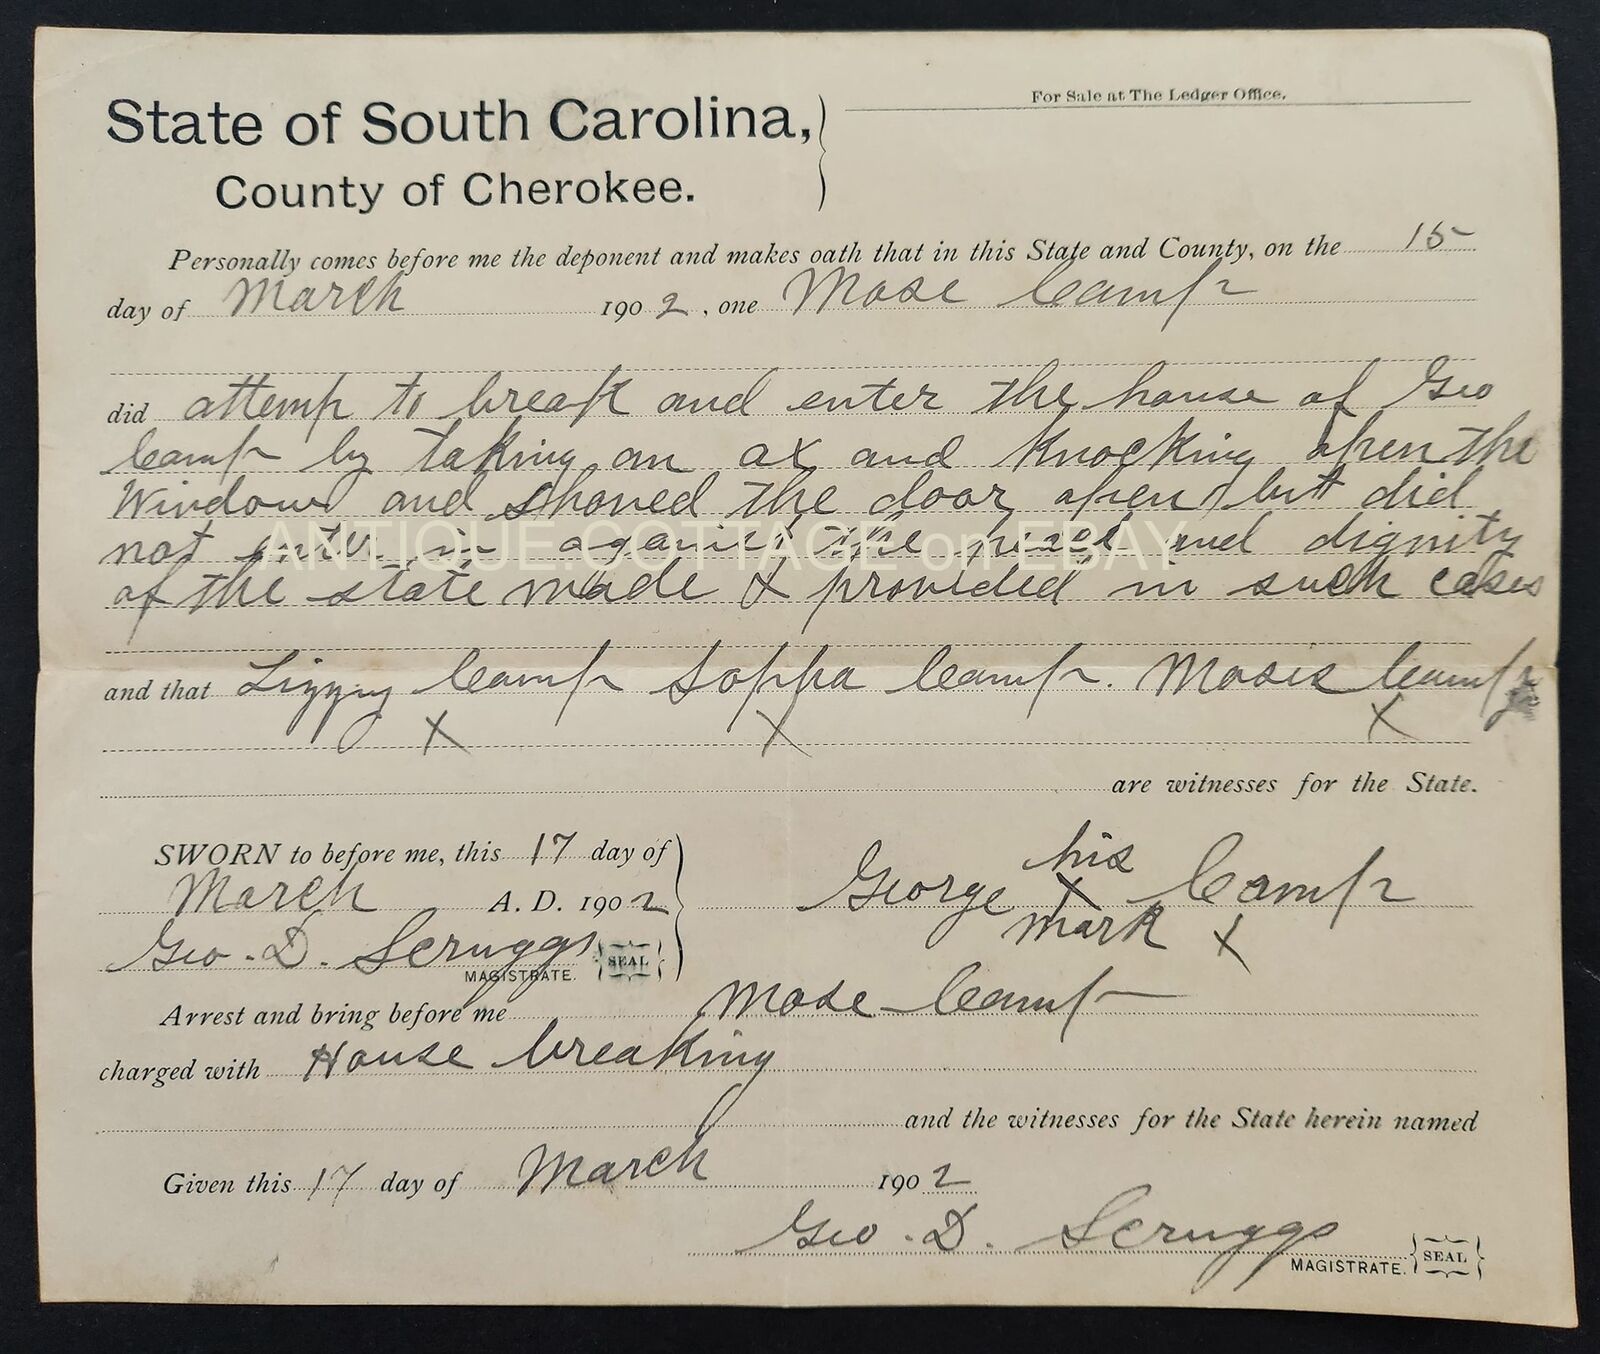 For Sale at The Ledger Office.
State of South Carolina,
County of Cherokee.
Personally comes before me the deponent and makes oath that in this State and County, on the 15
day of March 1902, one Mose Camp
did attemp to break and enter the house of Geo
Camp by taking an ax and Knocking open the
Window and shoved the door open but did
not enter in against the peace and dignity
of the state made & provided in such cases
ANTIQUE COTTAGE on EBAY
and that Lizzy Camp Soppa Camp. Moses Camp
X X X
are witnesses for the State.
SWORN to before me, this 17 day of
March A. D. 1902
Geo. D. Scruggs
MAGISTRATE. SEAL
his
George X Camp
mark X
Arrest and bring before me Mose Camp
charged with House breaking
and the witnesses for the State herein named
Given this 17 day of March 1902
Geo. D. Scruggs
MAGISTRATE. SEAL